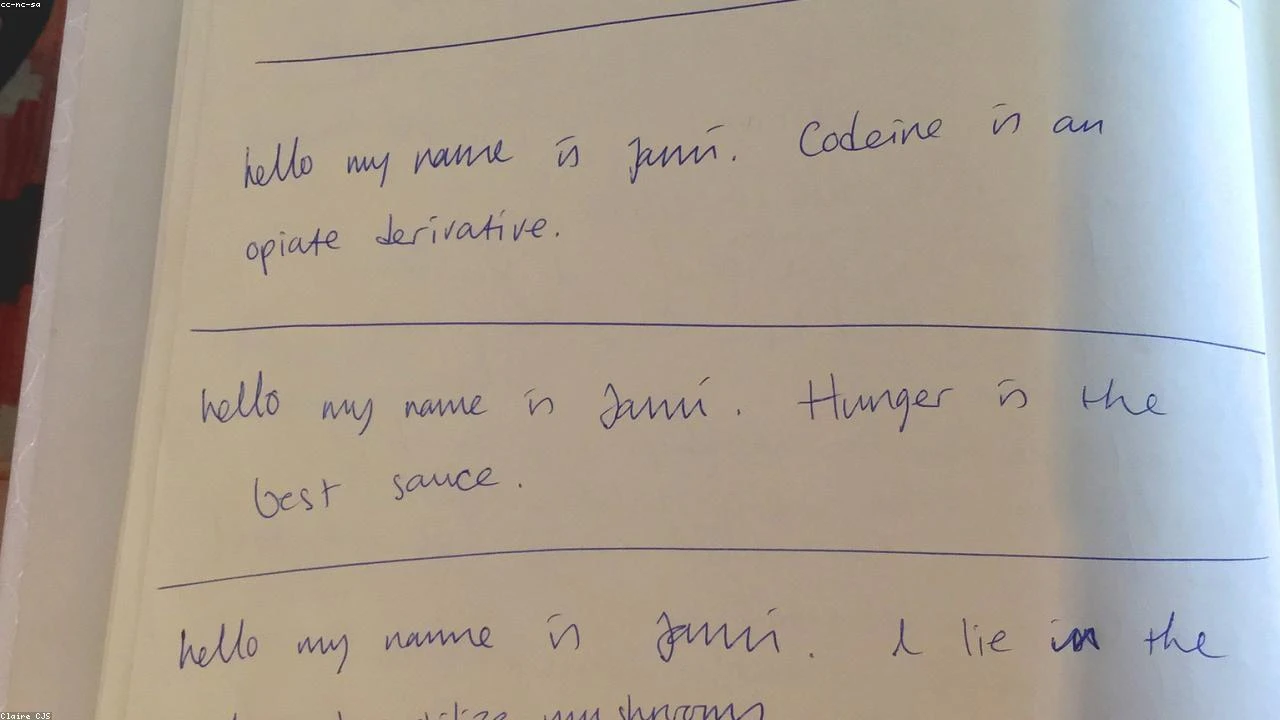 cc-nc-sa
hello my name is Jami. Codeine is an
opiate derivative.
hello my name is Jami. Hunger is the
best sauce.
hello my name is Jami. I lie in the
mushrooms
Claire CJS